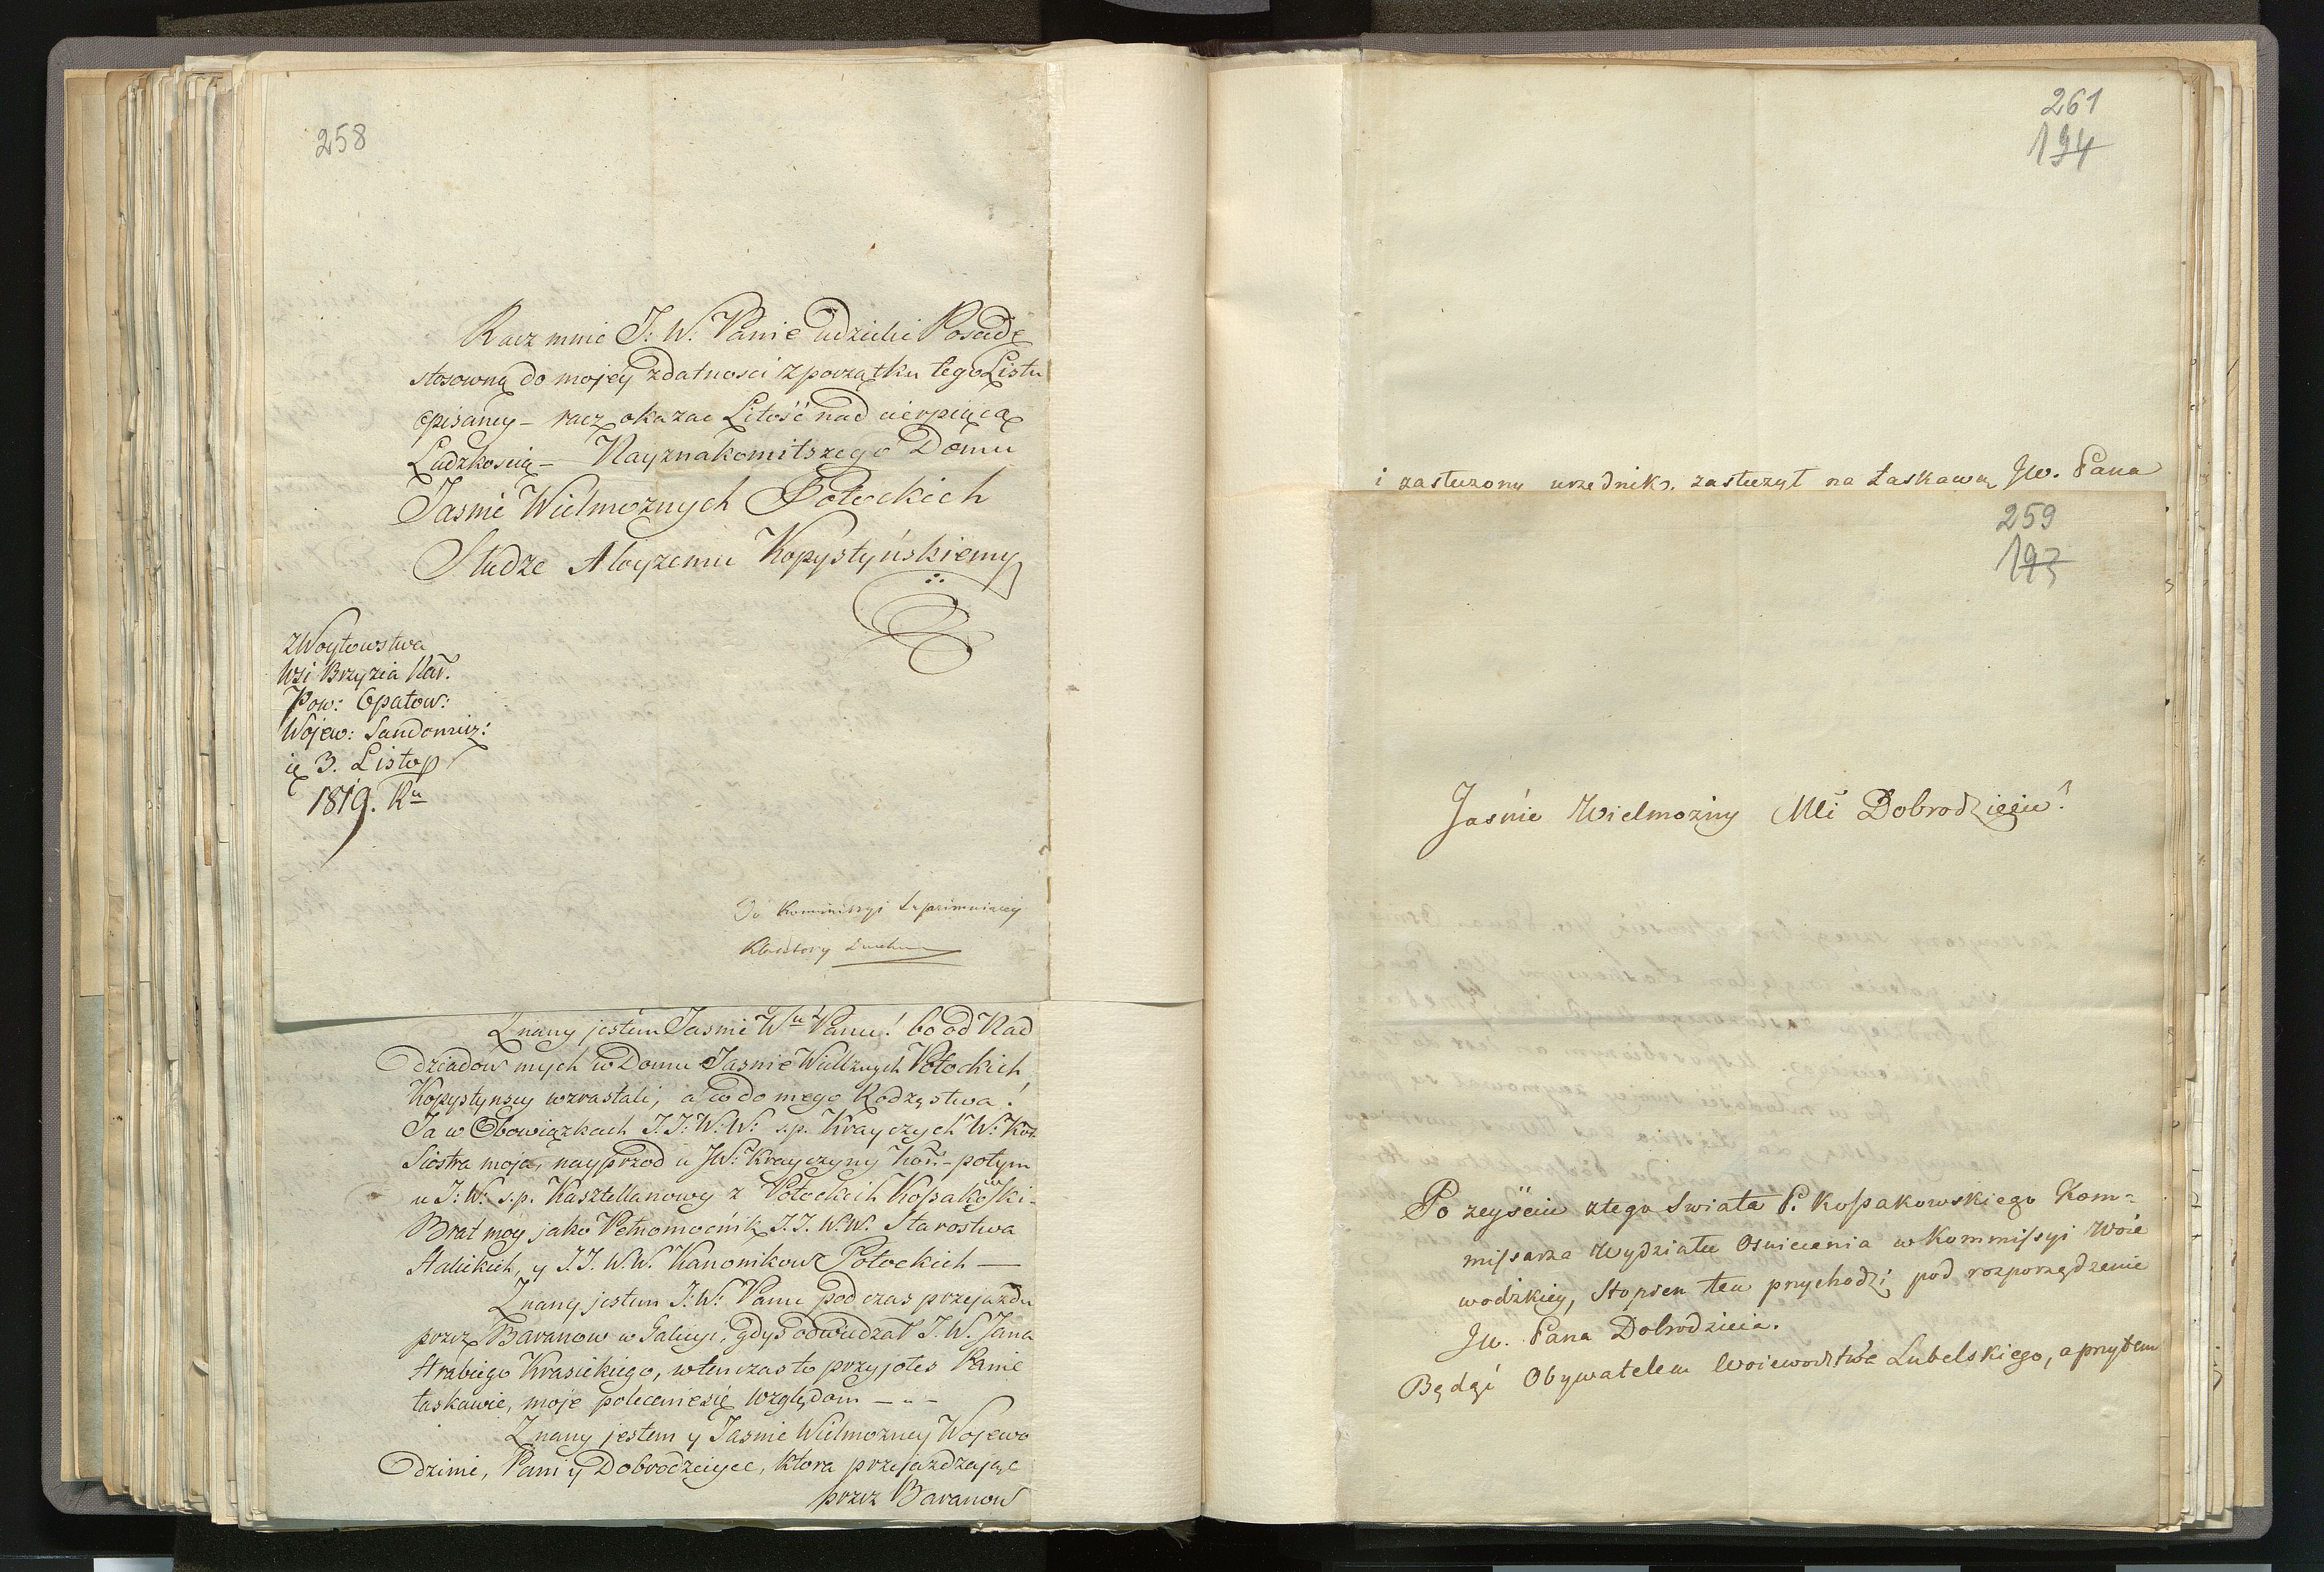 258
Racz mnie J: W. Panie udzielić Posadę
stosowną do mojey zdatnosci z początku tego Listu
opisaney – racz okazac Litość nad cierpiącą
Ludzkoscią – Nayznakomitszego Domu
Jasnie Wielmoznych Potockich
Słudze Aloyzemu Kopystyńskiemu
z Woytowstwa
Wsi Brzyzia
Pow: Opatow:
Wojew: Sandomirz:
3. Listop
1819. Ru
Do Kommissyi
Klasztory
Znany jestem Jasnie Wu Panu! bo od Nad
dziadow mych w Domu Jasnie Wielznych Potockich
Kopystynscy wzrastali, a co do mego Rodzęstwa!
Ja w Obowiązkach J.J: W.W: s.p. Krayczych W: Kor
Siostra moja, nayprzod u JW: Krayczyny Kor. – potym
u J: W: s.p. Kasztellanowy z Potockich Kossakowski –
Brat moy jako Pełnomocnik J.J. W.W. Starostwa
Halickich, y J.J. W.W. Kanonikow Potockich —
Znany jestem J: W: Panu podczas przejazdu
przez Baranow w Galicyi, gdyś odwiedzał J. W. Jana
Hrabiego Krasickiego, wtenczas to przyjołes Panie
łaskawie, moje polecenie się względom – „ –
Znany jestem y Jasnie Wielmozney Wojewo
dzinie, Pani y Dobrodzeyce, ktora przejazdzając
przez Baranow
261
194
i zasłuzony urzednik. zasłuzył na Łaskawą Jw. Pana
259
193
Jaśnie Wielmożny Mći Dobrodzieiu!
Po zeyściu z tego Swiata P. Kossakowskiego Kom=
missarza Wydziału Oswiecenia w Kommissyi Woie
wodzkiey, Stopien ten przychodzi pod rozporządzenie
Jw. Pana Dobrodzieia.
Będąc Obywatelem Woiewodztwa Lubelskiego, a przytem